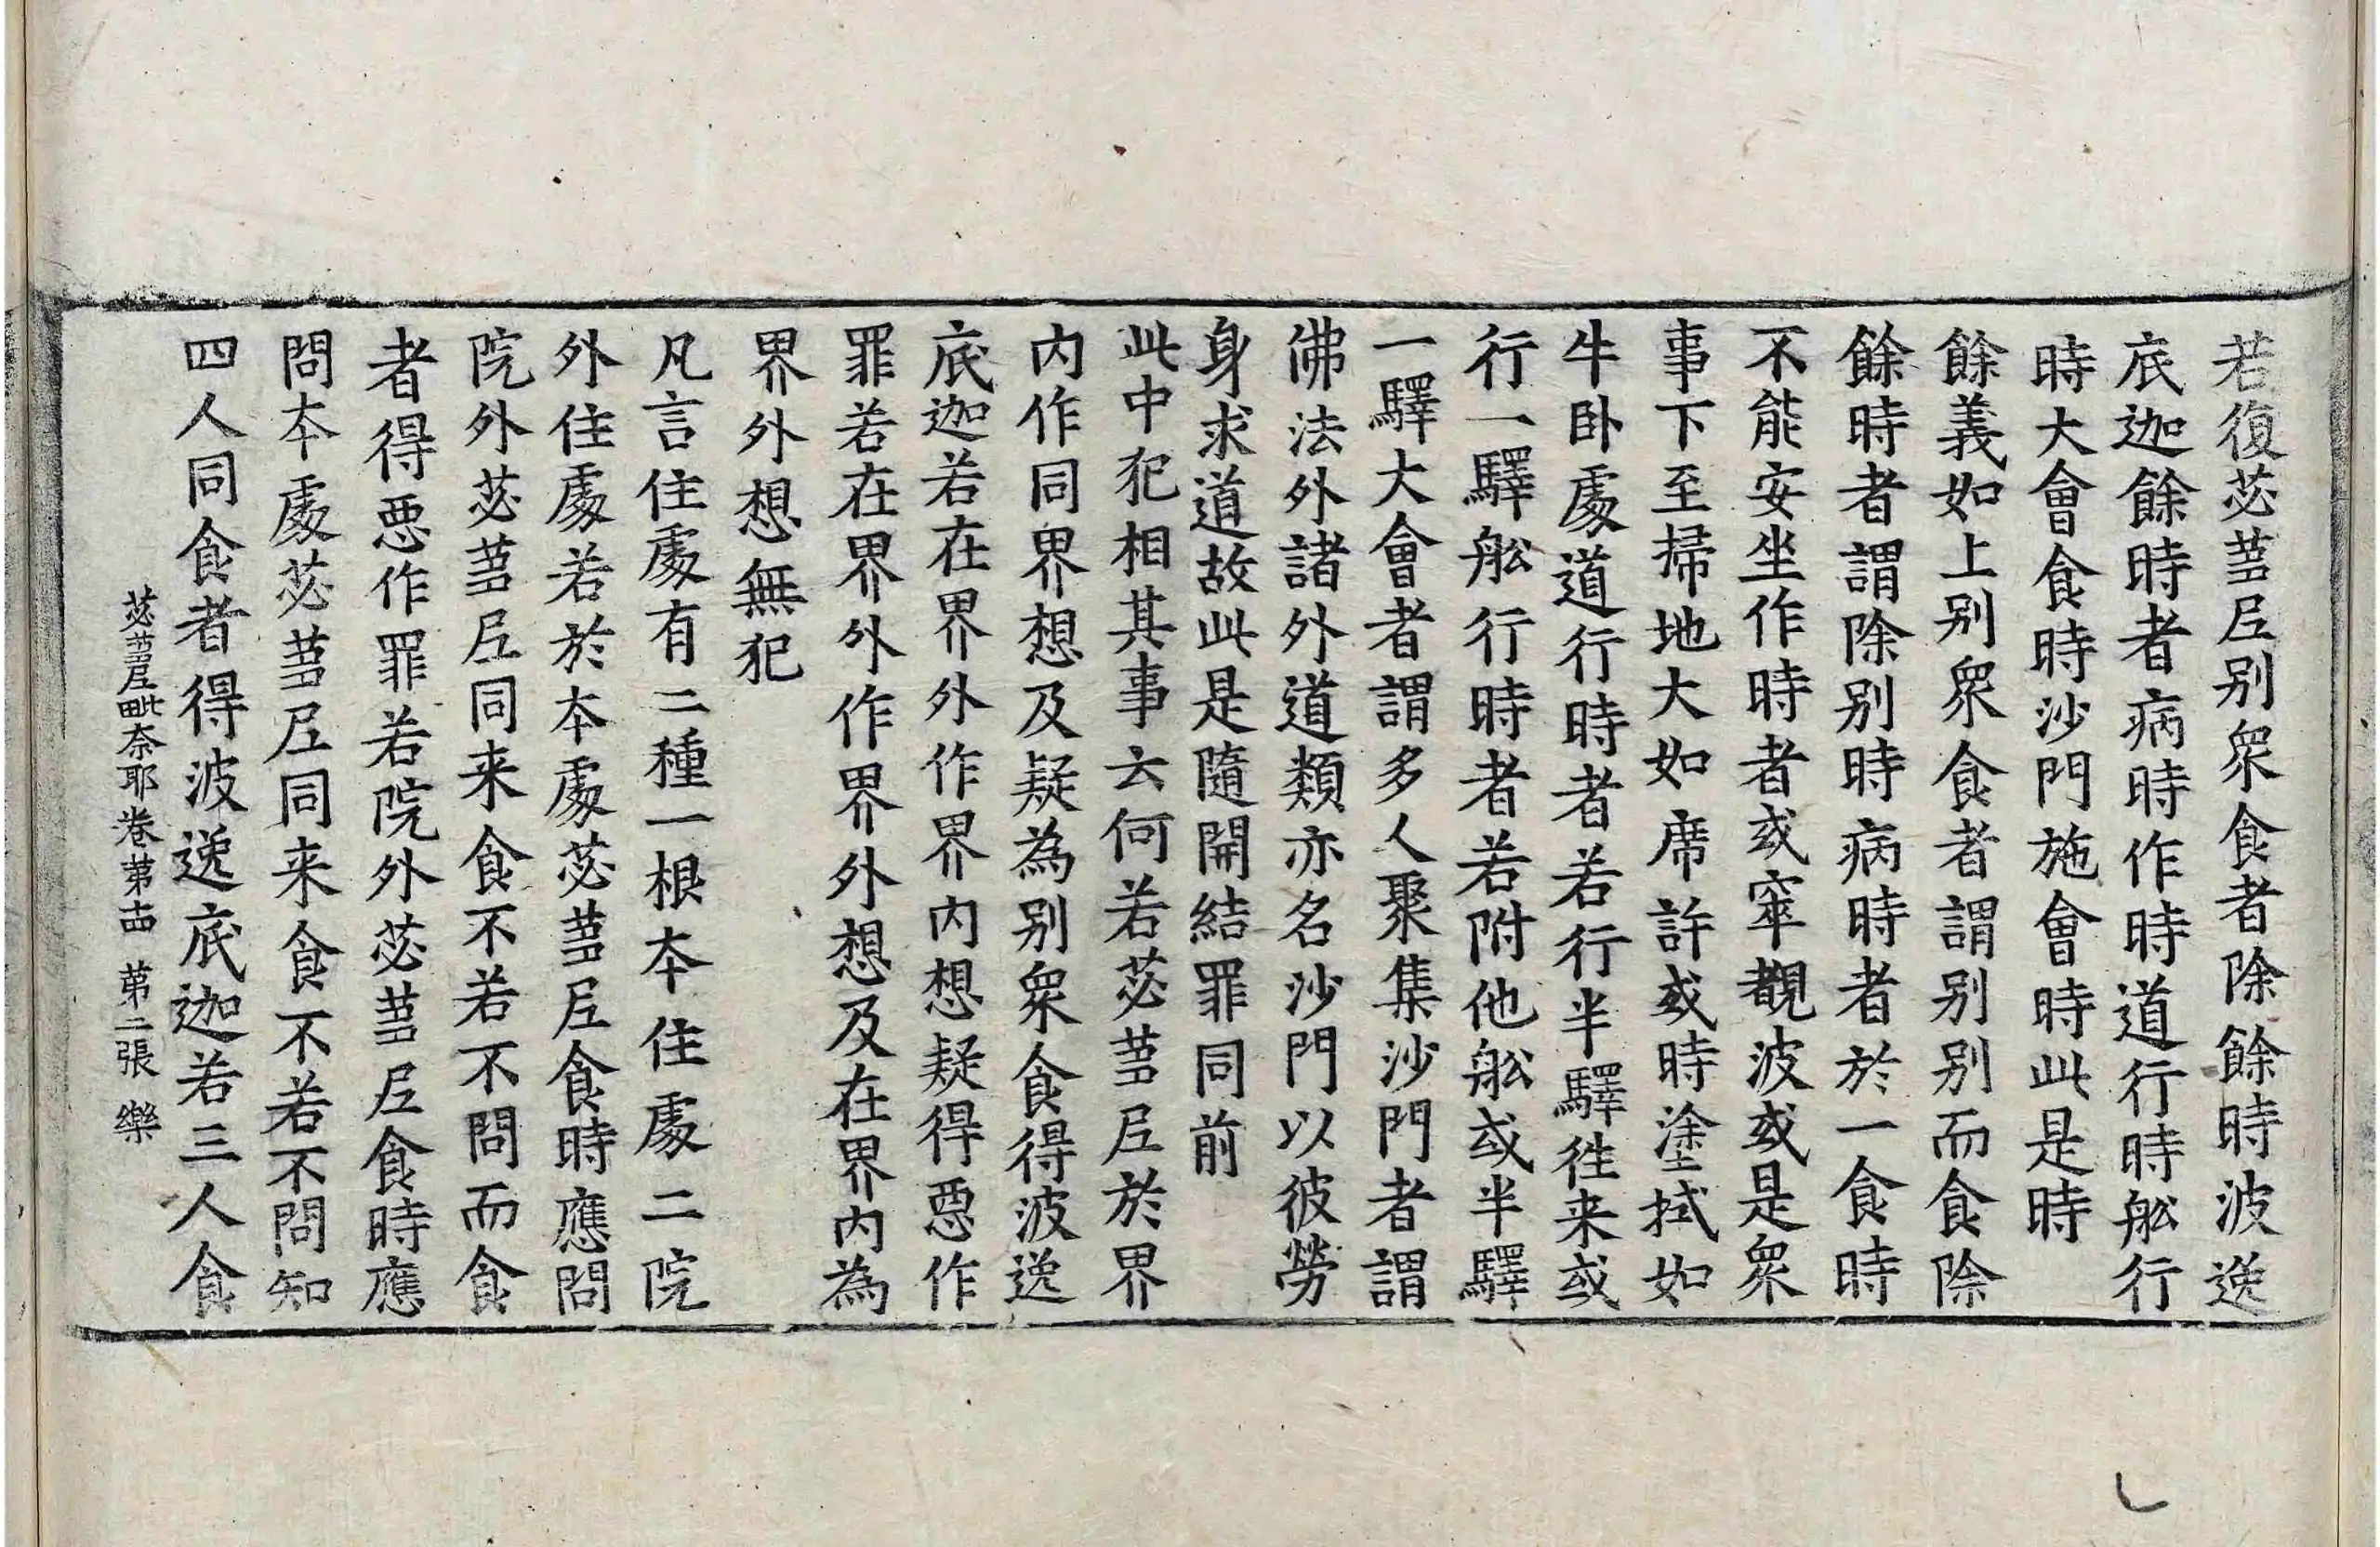 若復苾蒭尼别衆食者除餘時波逸
底迦餘時者病時作時道行時舩行
時大會食時沙門施會時此是時
餘義如上别衆食者謂别别而食除
餘時者謂除别時病時者於一食時
不能安坐作時者或窣覩波或是衆
事下至掃地大如席許或時塗拭如
牛卧處道行時者若行半驛徃来或
行一驛舩行時者若附他舩或半驛
一驛大會者謂多人聚集沙門者謂
佛法外諸外道類亦名沙門以彼勞
身求道故此是隨開結罪同前
此中犯相其事云何若苾蒭尼於界
内作同界想及疑為别衆食得波逸
底迦若在界外作界内想疑得惡作
罪若在界外作界外想及在界内為
界外想無犯
凡言住處有二種一根本住處二院
外住處若於本處苾蒭尼食時應問
院外苾蒭尼同来食不若不問而食
者得惡作罪若院外苾蒭尼食時應
問本處苾蒭尼同来食不若不問知
四人同食者得波逸底迦若三人食
苾蒭尼毗奈耶卷第十四 第二張 樂